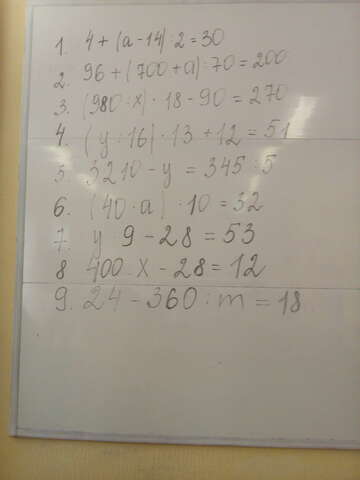 1. 4 + (a - 14) : 2 = 30
2. 96 + (700 + a) : 70 = 200
3. (980 : x) · 18 - 90 = 270
4. (y : 16) · 13 + 12 = 51
5. 5210 - y = 345 : 5
6. (40 · a) · 10 = 32
7. y 9 - 28 = 53
8 400 x - 28 = 12
9. 24 - 360 : m = 18